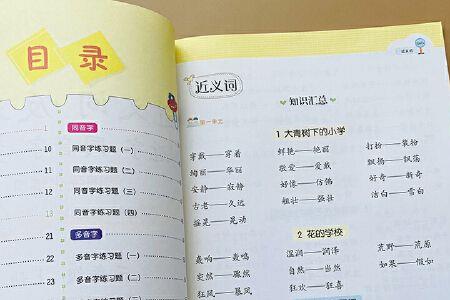 目录
1 同音字
10 同音字练习题（一）
11 同音字练习题（二）
12 同音字练习题（三）
13 同音字练习题（四）
21 多音字
21 多音字练习题（一）
22 多音字练习题（二）
23 多音字练习题（三）
近义词
知识汇总
第一单元
1 大青树下的小学
穿戴——穿着 鲜艳——艳丽 打扮——装扮
绚丽——华丽 敬爱——爱戴 飘扬——飘荡
安静——寂静 好像——仿佛 好奇——新奇
古老——久远 粗壮——强壮 洁白——雪白
摇晃——晃动
2 花的学校
轰响——轰鸣 湿润——润泽 荒野——荒原
突然——骤然 自然——当然 如果——假如
狂风——暴风 狂欢——狂喜